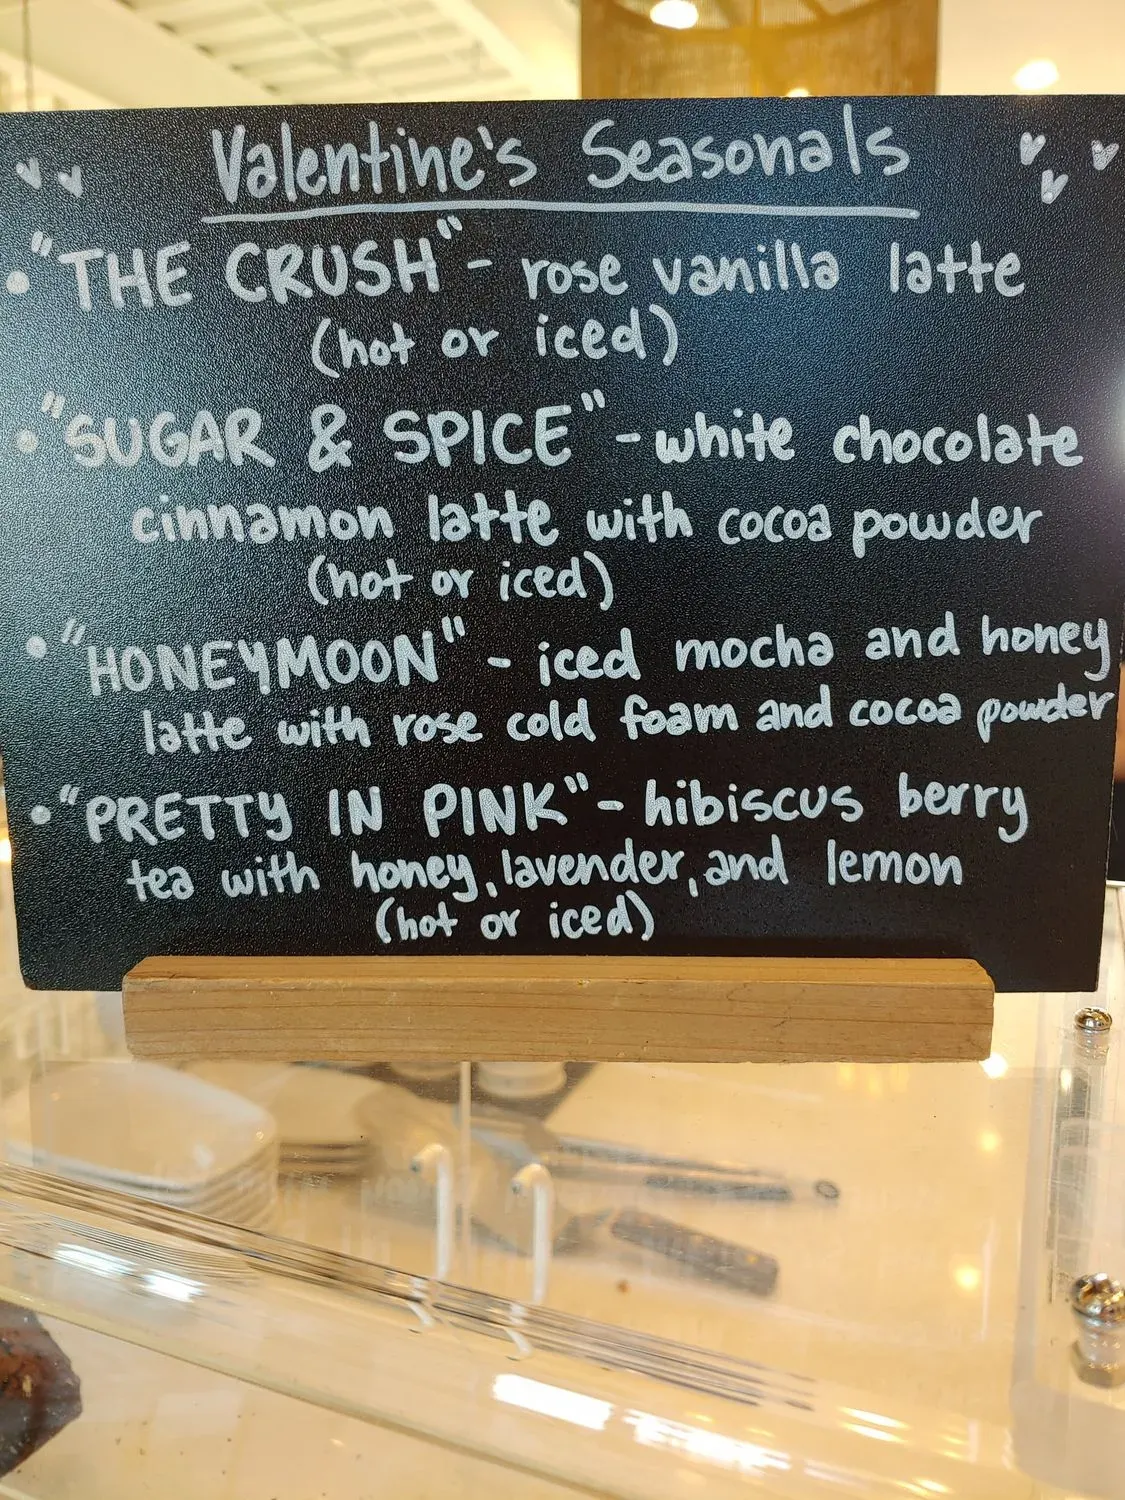 Valentine's Seasonals
• "THE CRUSH" - rose vanilla latte
(hot or iced)
• "SUGAR & SPICE" - white chocolate
cinnamon latte with cocoa powder
(hot or iced)
• "HONEYMOON" - iced mocha and honey
latte with rose cold foam and cocoa powder
• "PRETTY IN PINK" - hibiscus berry
tea with honey, lavender, and lemon
(hot or iced)